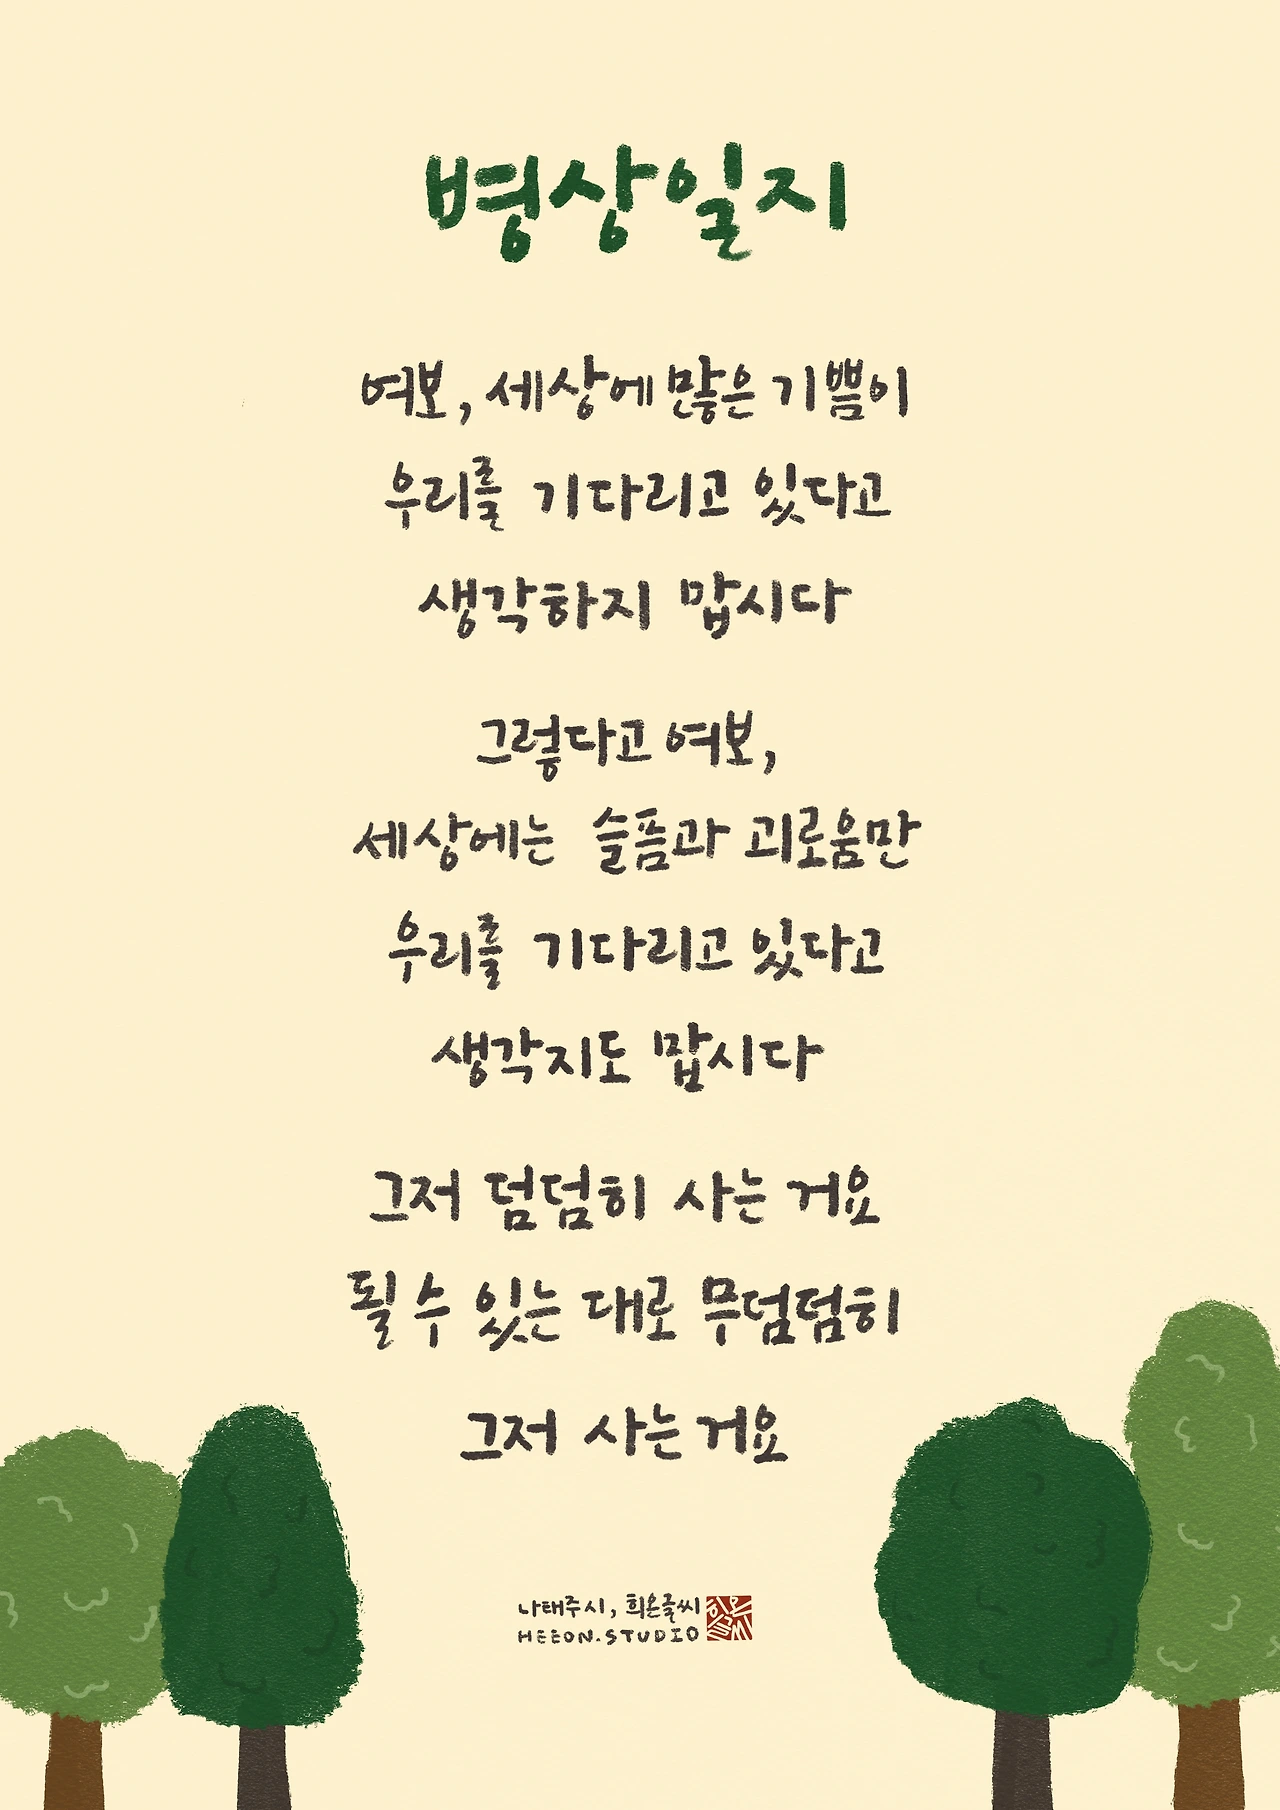 병상일지
여보, 세상에 많은 기쁨이
우리를 기다리고 있다고
생각하지 맙시다
그렇다고 여보,
세상에는 슬픔과 괴로움만
우리를 기다리고 있다고
생각지도 맙시다
그저 덤덤히 사는 거요
될 수 있는 대로 무덤덤히
그저 사는 거요
나태주 시, 희온글씨
HEEON.STUDIO
희온글씨